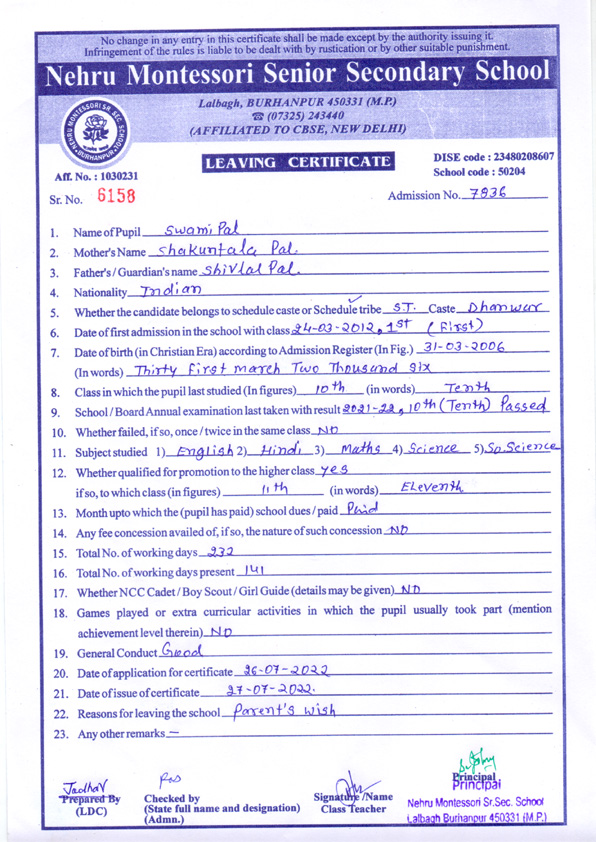 No change in any entry in this certificate shall be made except by the authority issuing it.
Infringement of the rules is liable to be dealt with by rustication or by other suitable punishment.
Nehru Montessori Senior Secondary School
Lalbagh, BURHANPUR 450331 (M.P.)
☎ (07325) 243440
(AFFILIATED TO CBSE, NEW DELHI)
NEHRU MONTESSORI SR. SEC. SCHOOL
BURHANPUR
LEAVING CERTIFICATE
DISE code : 23480208607
School code : 50204
Aff. No. : 1030231
Sr. No. 6158
Admission No. 7836
1. Name of Pupil Swami Pal
2. Mother's Name Shakuntala Pal.
3. Father's / Guardian's name Shivlal Pal.
4. Nationality Indian
5. Whether the candidate belongs to schedule caste or Schedule tribe ✓ S.T. Caste Dhanwar
6. Date of first admission in the school with class 24-03-2012, 1st (First)
7. Date of birth (in Christian Era) according to Admission Register (In Fig.) 31-03-2006
(In words) Thirty First March Two Thousand Six
8. Class in which the pupil last studied (In figures) 10th (in words) Tenth
9. School / Board Annual examination last taken with result 2021-22, 10th (Tenth) Passed
10. Whether failed, if so, once / twice in the same class NO
11. Subject studied 1) English 2) Hindi 3) Maths 4) Science 5) So. Science
12. Whether qualified for promotion to the higher class yes
if so, to which class (in figures) 11th (in words) Eleventh
13. Month upto which the (pupil has paid) school dues / paid Paid
14. Any fee concession availed of, if so, the nature of such concession NO
15. Total No. of working days 232
16. Total No. of working days present 141
17. Whether NCC Cadet / Boy Scout / Girl Guide (details may be given) NO
18. Games played or extra curricular activities in which the pupil usually took part (mention
achievement level therein) NO
19. General Conduct Good
20. Date of application for certificate 26-07-2022
21. Date of issue of certificate 27-07-2022.
22. Reasons for leaving the school Parent's Wish
23. Any other remarks —
Jadhav
Prepared By
(LDC)
Checked by
(State full name and designation)
(Admn.)
Signature /Name
Class Teacher
Principal
Principal
Nehru Montessori Sr.Sec. School
Lalbagh Burhanpur 450331 (M.P.)